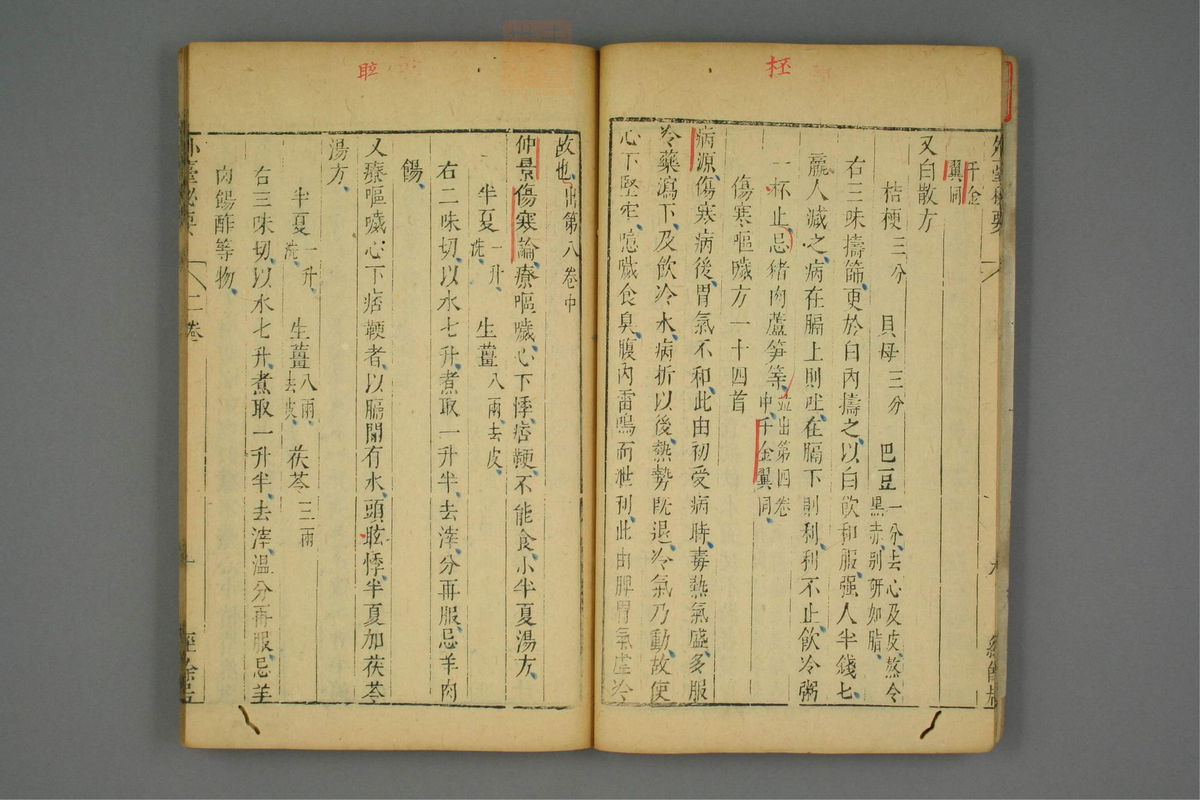 杯
千金
翼同
又白散方
桔梗三分 貝母三分 巴豆一分去心及皮熬令黑赤別研如脂
右三味擣篩更於臼內擣之以白飲和服强人半錢匕
羸人減之病在膈上則吐在膈下則利利不止飲冷粥
一杯止忌猪肉蘆笋等並出第四卷中千金翼同
傷寒嘔噦方一十四首
病源傷寒病後胃氣不和此由初受病時毒熱氣盛多服
冷藥瀉下及飲冷水病折以後熱勢旣退冷氣乃動故使
心下堅牢噫噦食臭腹內雷鳴而泄利此由脾胃氣虛冷
故也出第八卷中
仲景傷寒論療嘔噦心下悸痞鞕不能食小半夏湯方
半夏一升洗 生薑八兩去皮
右二味切以水七升煮取一升半去滓分再服忌羊肉
餳
又療嘔噦心下痞鞕者以膈間有水頭眩悸半夏加茯苓
湯方
半夏一升洗 生薑八兩去皮 茯苓三兩
右三味切以水七升煮取一升半去滓温分再服忌羊
肉餳酢等物
外臺秘要 二卷 十